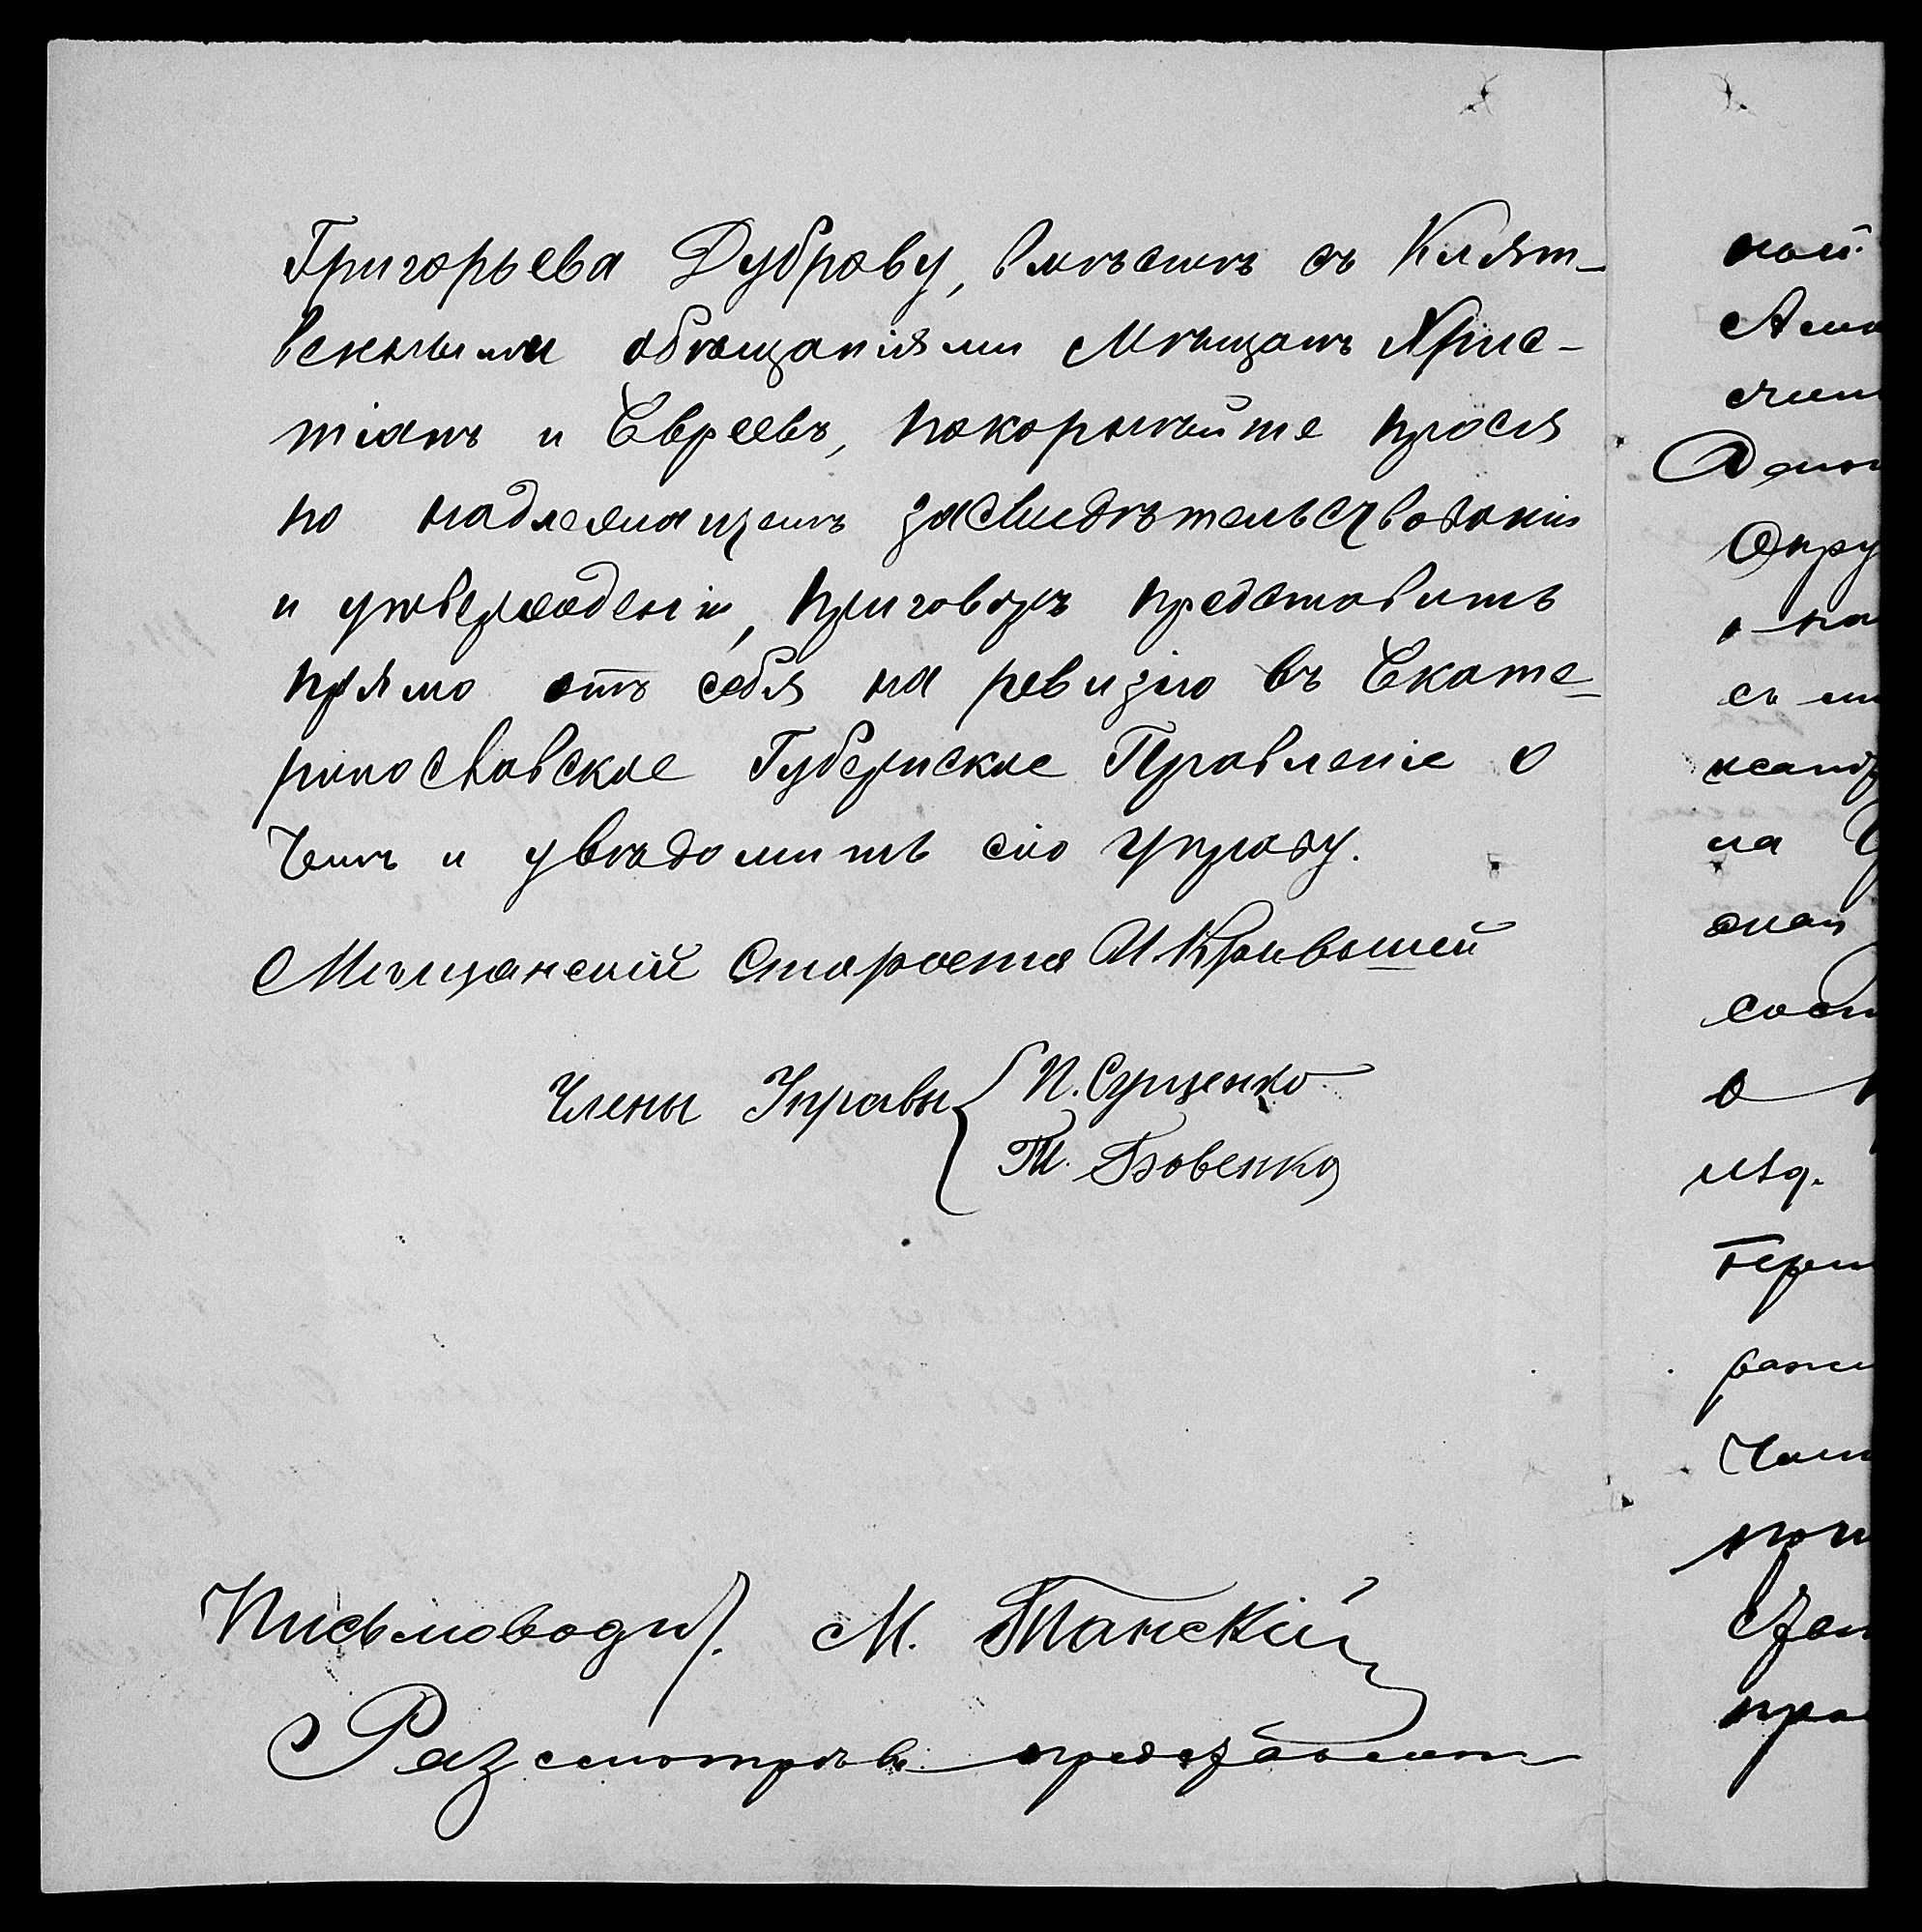 Григорьева Дуброву, вмѣстѣ съ Клят-
венными обѣщаніями Мѣщанъ Хрис-
тіанъ и Евреевъ, покорнѣйше прося
по надлежащемъ засвидѣтельствованіи
и утвержденіи, приговоръ представить
прямо отъ себя на ревизію въ Екате-
ринославское Губернское Правленіе о
чемъ и увѣдомить сію управу.
Мѣщанскій Староста И. Кривышей
Члены Управы
П. Сущенко
Т. Бовенко
Письмоводит. М. Танскій
Разсмотрѣвъ представлен
ной
Алек
Окру
съ
на
о
бери
пра